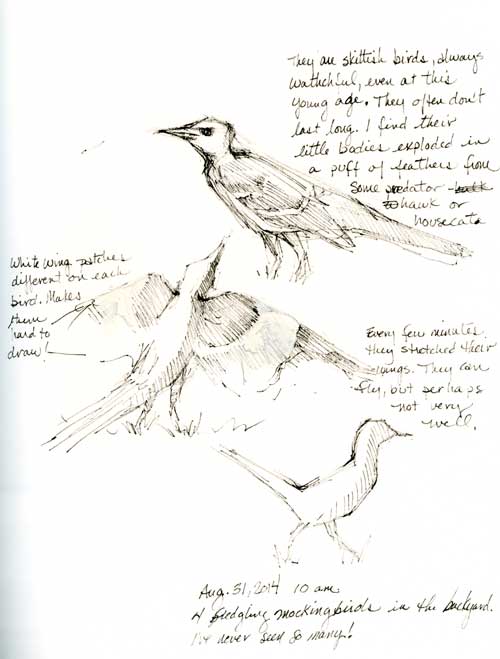 They are skittish birds, always
wathchful, even at this
young age. They often don't
last long. I find their
little bodies exploded in
a puff of feathers from
some predator
hawk or
housecats
White wing patches
different on each
bird. Makes
them
hard to
draw!
Every few minutes
they stretched their
wings. They can
fly, but perhaps
not very
well.
Aug. 31, 2014 10 am
4 fledgling mockingbirds in the backyard.
I've never seen so many!